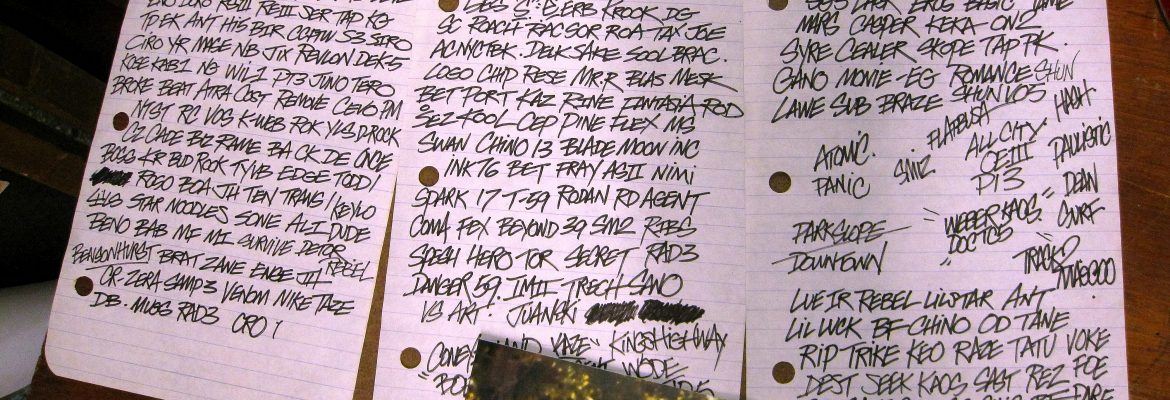 TP EK ANT HIS BIR S3 SIRO
CIRO YR MAGE NB JIX REVLON DEK-5
KAB1 NG WIL1 PT3 JUNO TERO
BROKE BEAT ATRA COST REMOVE CEVO PM
MTST RC VOS K-WEB ROK YLS D.ROCK
CZ CADE BIZ RAME BACK DE ONCE
BOSS KR BLD ROCK TYVB EDGE TODD1
ROGO BOA JH TEN TRANS / KEYLO
STAR NOODLES SONE ALI DUDE
BENO BAB ME MI SURVIVE DETOR
BENSONHURST BRAT ZANE ENGE JH REBEL
CR-ZERA SAMP3 VENOM NIKE TAZE
DB. MUGS RAD3 CRO
KROOK DG
SC ROACH TRAC SOR ROA TAX JOE
AC NYCTBK. DEUK SAKE SOOL BRAC.
LOGO CHIP RESE MR.R BLAS MESK
BET PORT KAZ RINE FANTASIA ROD
SEZ KOOL CEP PINE FLEX MS
SWAN CHINO 13 BLADE MOON INC
INK 76 BET FRAY AS II NIMI
SPARK 17 T-59 RODAN RD AGENT
COMA FEX BEYOND 39 SM2 RIBS
SPECH HERO TOR SECRET RAD3
DANGER 59. IMII TRECH SANO
VS ART. JUANSKI
KAZE KINGSHIGHWAY
WODE
MARS CASPER KEKA ON2
SYRE CEALER SKOPE TAP PK.
GANO MOVIE-EG ROMANCE SHUN
LAWE SUB BRAZE SHUN LO5
FLATBUSH
ATOMIC. SM2 ALL CITY. HASH
PANIC OEIII BALLISTIC
PT3 DEAN
PARK SLOPE "WEBER KAOS" SURF
DOWNTOWN DOCTOS
TRACK2
LUE IR REBEL LILSTAR ANT
LIL LUCK BF CHINO OD TANE
RIP TRIKE KEO RAZE TATU VOKE
DEST SEEK KAOS SAST REZ FOE